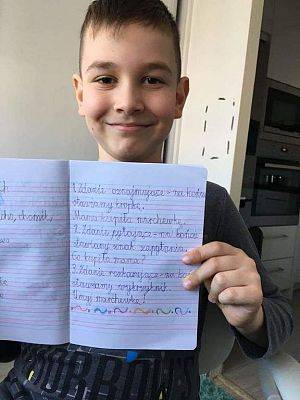 ch
1. Zdanie oznajmujące - na końcu
stawiamy kropkę.
Mama kupiła marchewkę.
2. Zdanie pytające - na końcu
stawiamy znak zapytania.
Co kupiła mama?
3. Zdanie rozkazujące - na końcu
stawiamy wykrzyknik.
Umyj marchewkę!